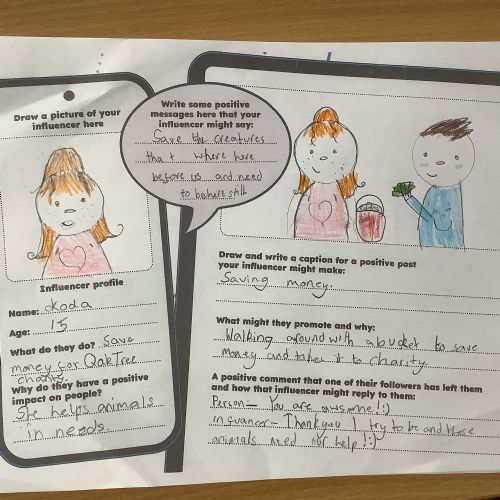 Draw a picture of your
influencer here
Influencer profile
Name: ckoda
Age: 15
What do they do? Save
money for OakTree
charity.
Why do they have a positive
impact on people?
She helps animals
in needs
Write some positive
messages here that your
influencer might say:
Save the creatures
that where here
before us and need
to be here still
Draw and write a caption for a positive post
your influencer might make:
Saving money.
What might they promote and why:
Walking around with a bucket to save
money and takes it to charity
A positive comment that one of their followers has left them
and how that influencer might reply to them:
Person - You are awsome!:)
influancer - Thankyou I try to be and these
animals need our help!:)